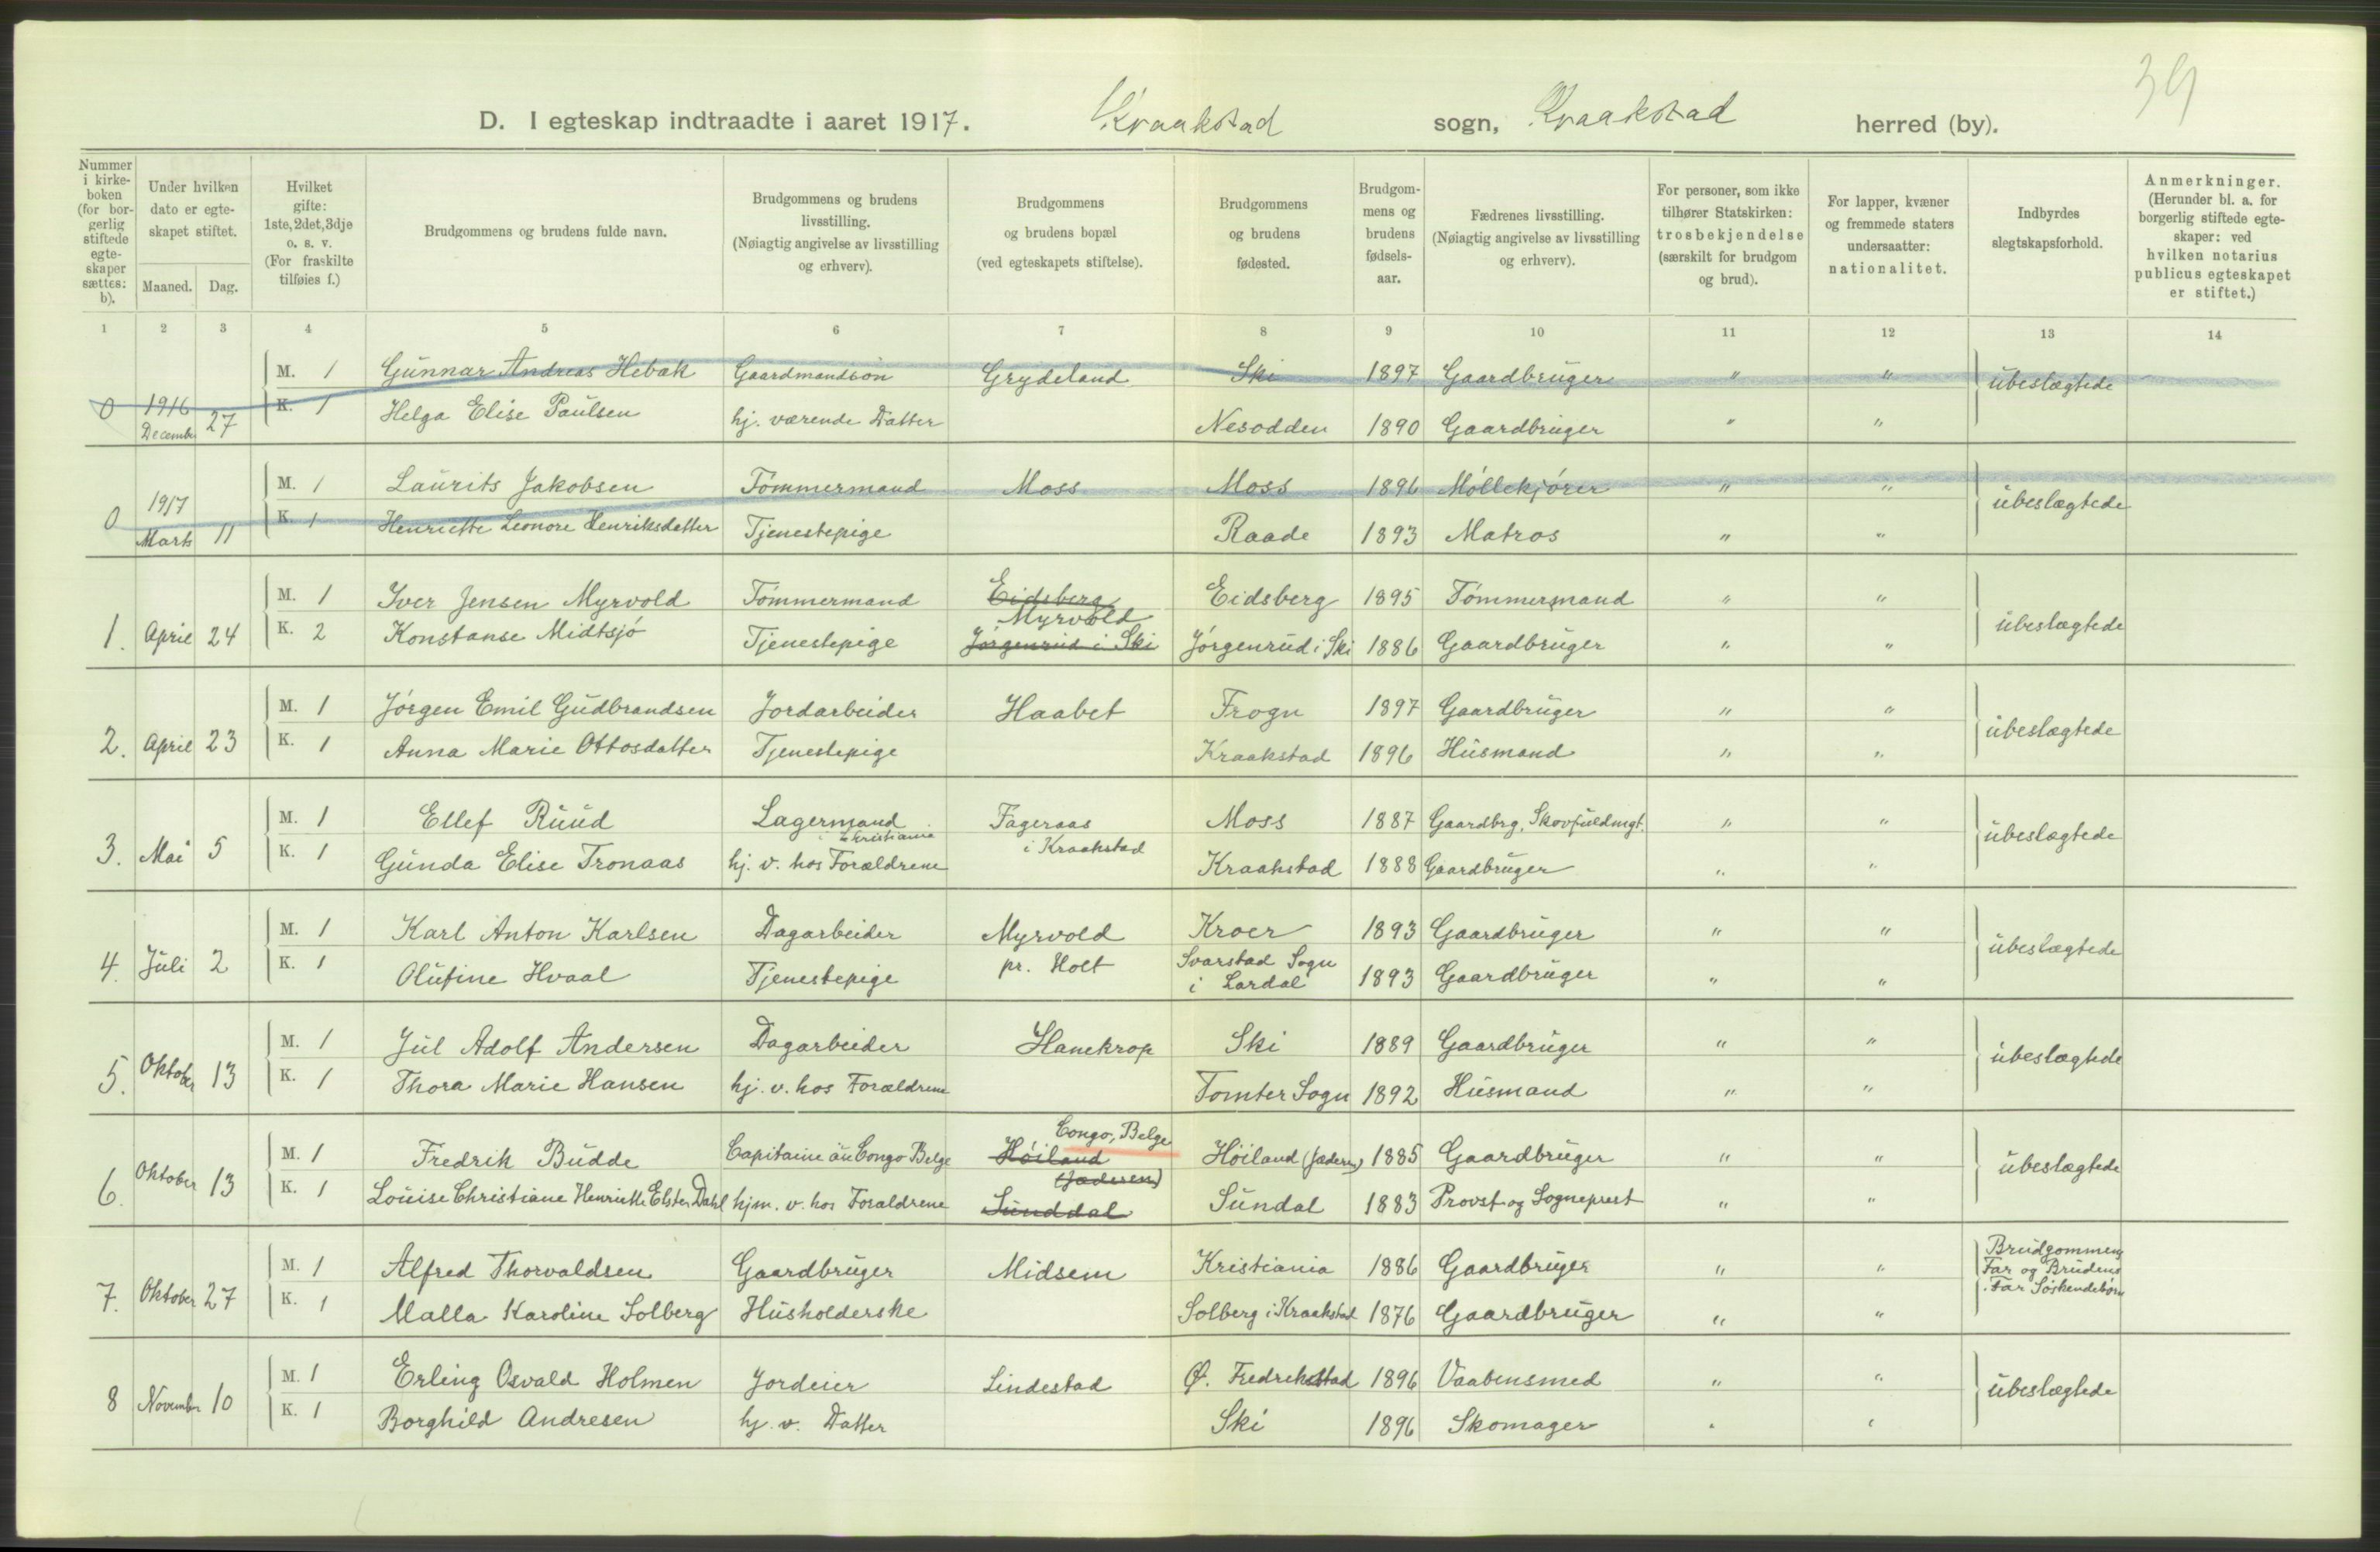 39
D. I egteskap indtraadte i aaret 1917. Kraakstad sogn, Kraakstad herred (by).
Nummer i kirke-boken (for bor-gerlig stiftede egte-skaper sættes: b).
Under hvilken dato er egte-skapet stiftet.
Maaned. Dag.
Hvilket gifte: 1ste, 2det, 3dje o. s. v. (For fraskilte tilføies f.)
Brudgommens og brudens fulde navn.
Brudgommens og brudens livsstilling. (Nøiagtig angivelse av livsstilling og erhverv).
Brudgommens og brudens bopæl (ved egteskapets stiftelse).
Brudgommens og brudens fødested.
Brudgom-mens og brudens fødsels-aar.
Fædrenes livsstilling. (Nøiagtig angivelse av livsstilling og erhverv).
For personer, som ikke tilhører Statskirken: trosbekjendelse (særskilt for brudgom og brud).
For lapper, kvæner og fremmede staters undersaatter: nationalitet.
Indbyrdes slegtskapsforhold.
Anmerkninger. (Herunder bl. a. for borgerlig stiftede egte-skaper: ved hvilken notarius publicus egteskapet er stiftet.)
1 2 3 4 5 6 7 8 9 10 11 12 13 14
M. 1 Gunnar Andreas Hebak Gaardmandsön Grydeland Ski 1897 Gaardbruger " " ubeslægtede
0 1916 December 27 K. 1 Helga Elise Paulsen hj. værende Datter Nesodden 1890 Gaardbruger " "
M. 1 Laurits Jakobsen Tömmermand Moss Moss 1896 Möllekjörer " " ubeslægtede
0 1917 Marts 11 K. 1 Henriette Leonore Henriksdatter Tjenestepige Raade 1893 Matros " "
M. 1 Iver Jensen Myrvold Tömmermand Eidsberg Myrvold Eidsberg 1895 Tömmermand " " ubeslægtede
1. April 24 K. 2 Konstanse Midtsjö Tjenestepige Jörgenrud i Ski Jörgenrud i Ski 1886 Gaardbruger " "
M. 1 Jörgen Emil Gudbrandsen Jordarbeider Haabet Frogn 1897 Gaardbruger " " ubeslægtede
2. April 23 K. 1 Anna Marie Ottosdatter Tjenestepige Kraakstad 1896 Husmand " "
M. 1 Ellef Ruud Lagermand i Kristiania Fageraas i Kraakstad Moss 1887 Gaardbrg, Skovfuldmgt. " " ubeslægtede
3. Mai 5 K. 1 Gunda Elise Tronaas hj. v. hos Forældrene Kraakstad 1888 Gaardbruger " "
M. 1 Karl Anton Karlsen Dagarbeider Myrvold Kroer 1893 Gaardbruger " " ubeslægtede
4. Juli 2 K. 1 Olufine Hvaal Tjenestepige pr. Holt Svarstad Sogn i Lardal 1893 Gaardbruger " "
M. 1 Jul Adolf Andersen Dagarbeider Hanekrop Ski 1889 Gaardbruger " " ubeslægtede
5. Oktober 13 K. 1 Thora Marie Hansen hj. v. hos Forældrene Tomter Sogn 1892 Husmand " "
M. 1 Fredrik Budde Capitaine au Congo Belge Congo, Belge Höiland (Jaderen) Höiland (Jaderen) 1885 Gaardbruger " " ubeslægtede
6. Oktober 13 K. 1 Louise Christiane Henriette Elster Dahl hjm. v. hos Forældrene Sunddal Sundal 1883 Provst og Sogneprest " "
M. 1 Alfred Thorvaldsen Gaardbruger Midsem Kristiania 1886 Gaardbruger " " Brudgommens Far og Brudens Far Söskendebörn
7. Oktober 27 K. 1 Malla Karoline Solberg Husholderske Solberg i Kraakstad 1876 Gaardbruger " "
M. 1 Erling Osvald Holmen Jordeier Lindestad Ø. Fredrikstad 1896 Vaabensmed " " ubeslægtede
8 November 10 K. 1 Borghild Andresen hj. v. Datter Ski 1896 Skomager " "